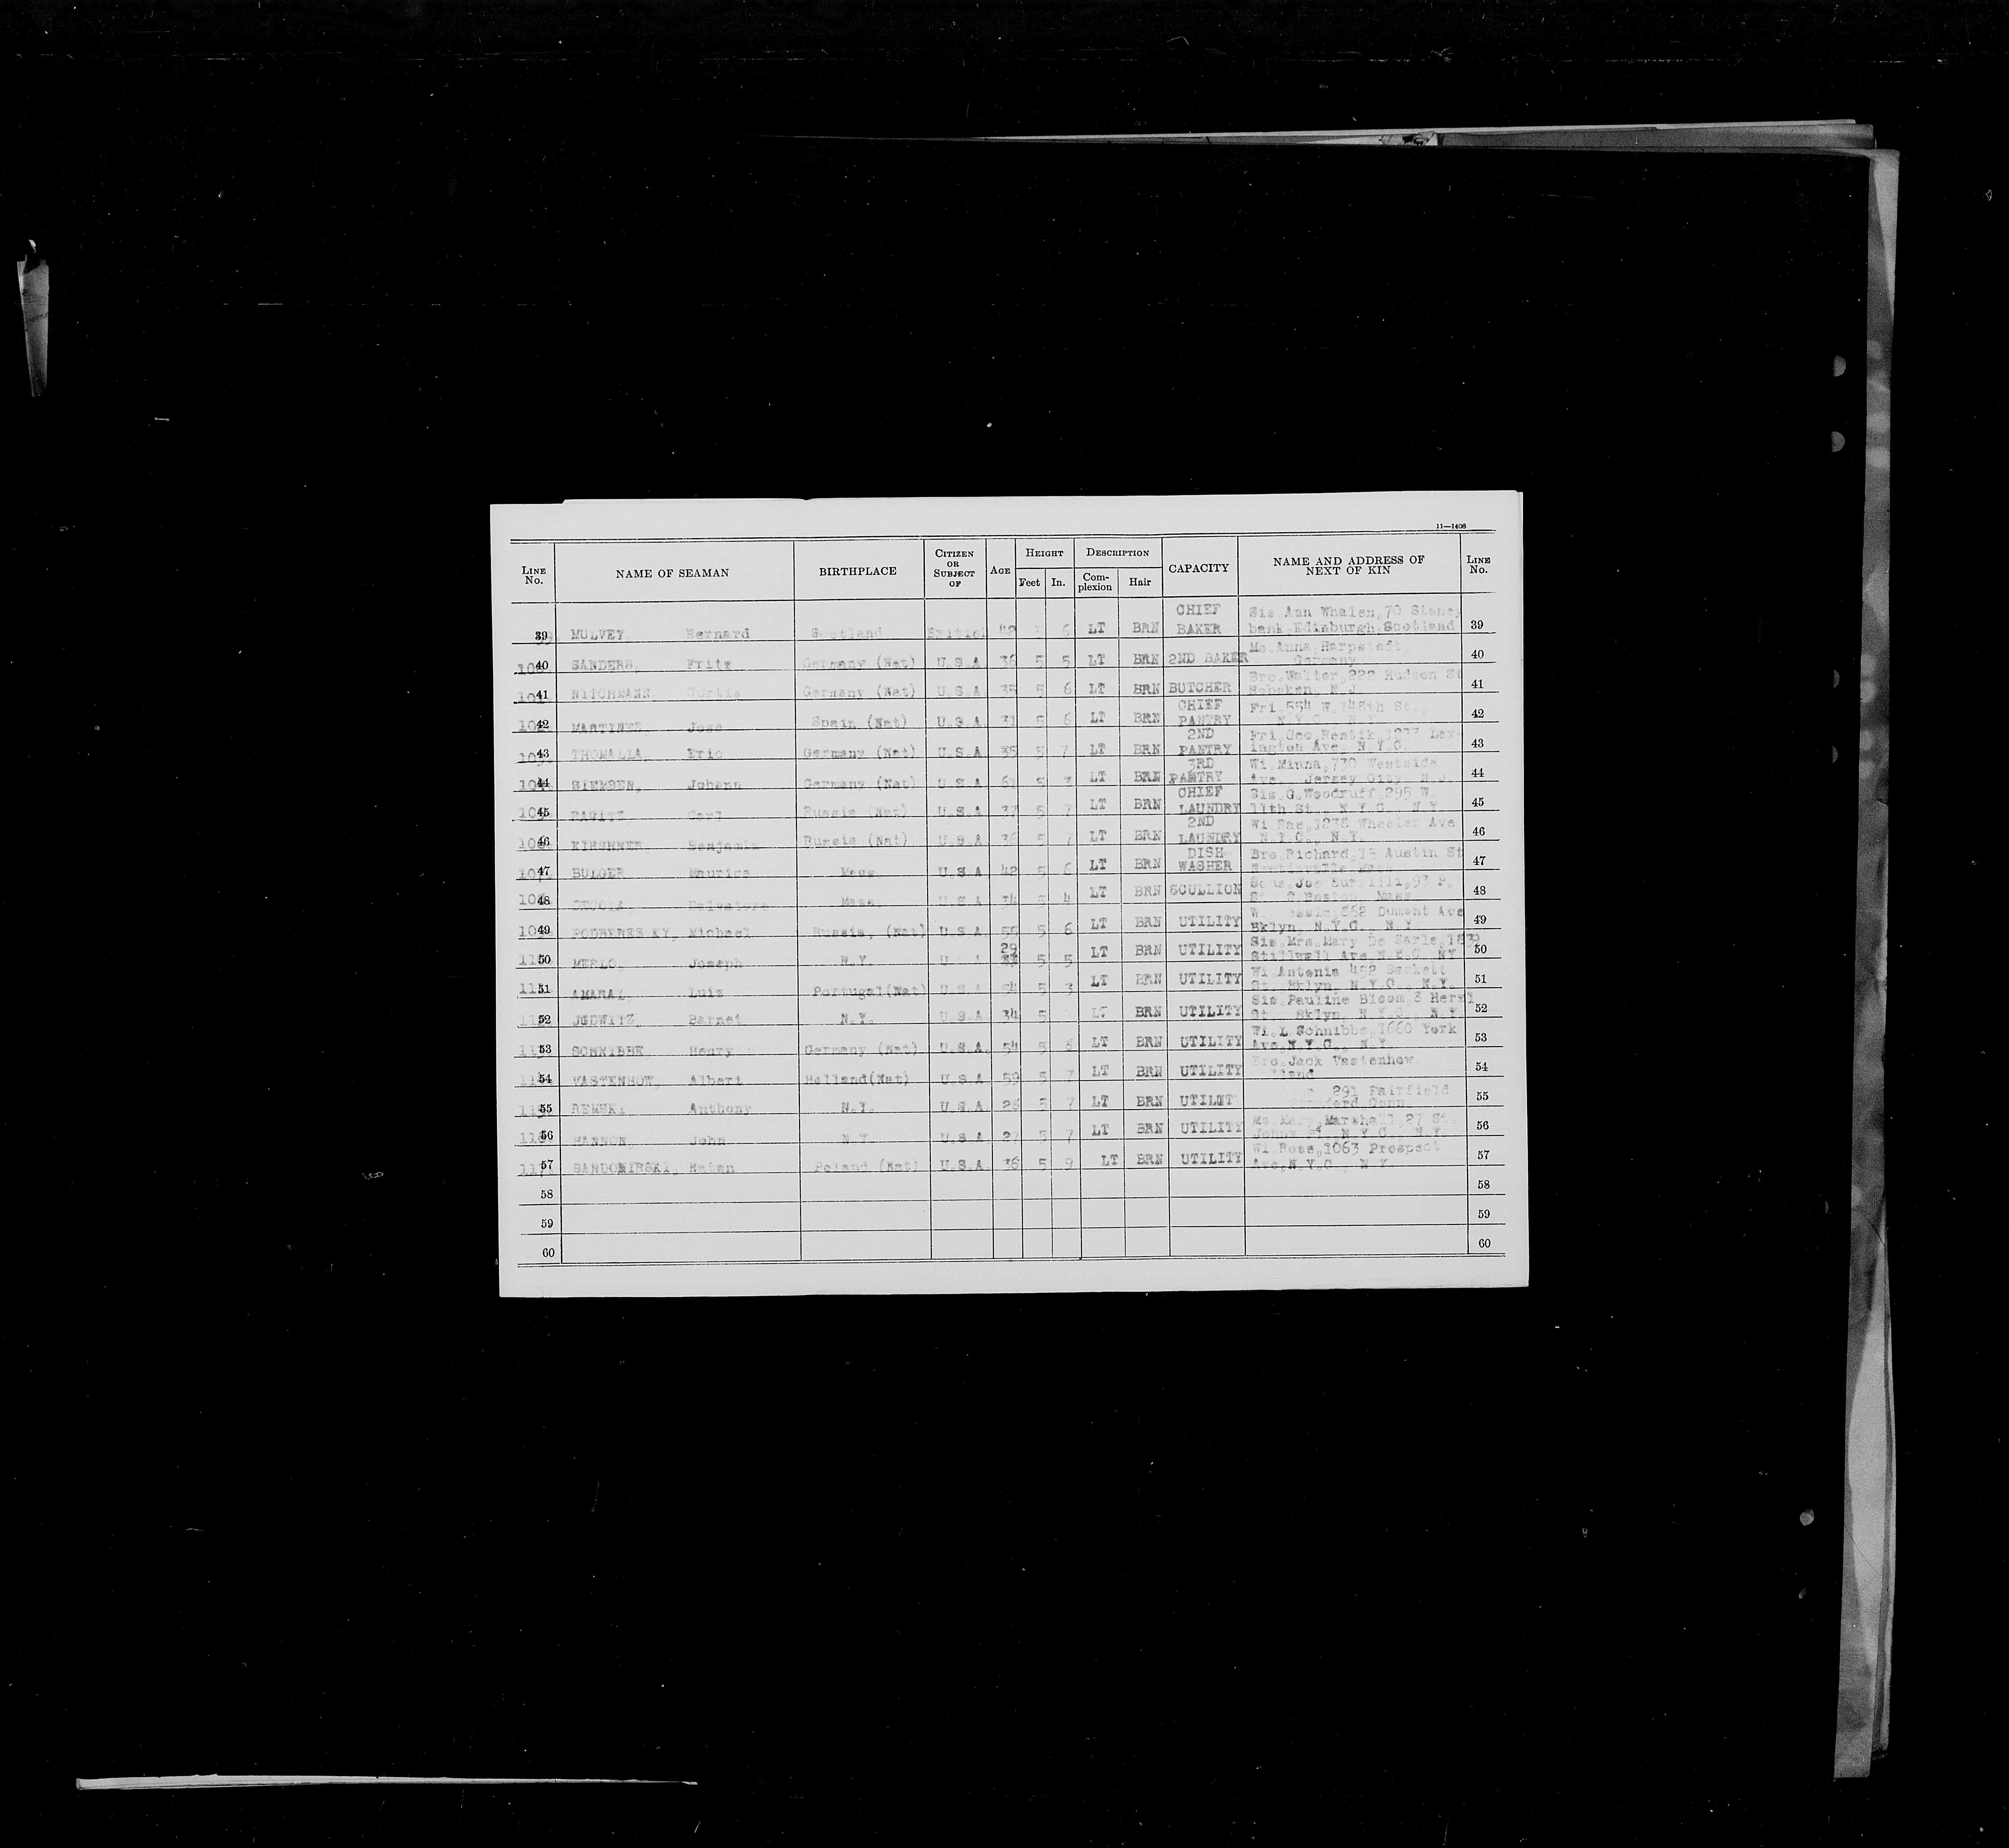 11—1408
LINE No. NAME OF SEAMAN BIRTHPLACE CITIZEN OR SUBJECT OF AGE HEIGHT Feet In. DESCRIPTION Complexion Hair CAPACITY NAME AND ADDRESS OF NEXT OF KIN LINE No.
39 MULVEY, Bernard Scotland British 42 6 LT BRN CHIEF BAKER Sis. Ann Whalen, 70 Stoney bank Edinburgh Scotland 39
40 SANDERS, Fritz Germany (Nat) U.S.A. 36 5 5 LT BRN 2ND BAKER Mo. Anna, Harpstedt, Germany 40
41 NITCHMANN Curtis Germany (Nat) U.S.A. 35 5 6 LT BRN BUTCHER Bro. Walter, 222 Hudson St Hoboken, N.J. 41
42 MARTINEZ, Jose Spain (Nat) U.S.A. 5 6 LT BRN CHIEF PANTRY Fri. 554 W. 148th St. N.Y.C. N.Y. 42
43 THOMALLA, Eric Germany (Nat) U.S.A. 35 5 7 LT BRN 2ND PANTRY Fri. Geo 1237 Lexington Ave, N.Y.C. 43
44 SIEMSEN, Johann Germany (Nat) U.S.A. 5 LT BRN 3RD PANTRY Wi. Minna, 730 Westside Ave. Jersey City N.J. 44
45 Russia (Nat) U.S.A. 37 5 7 LT BRN CHIEF LAUNDRY Sis. G. Woodruff, 295 W. 11th St. N.Y.C. N.Y. 45
46 KIRSHNER Benjamin Russia (Nat) U.S.A. 36 5 7 LT BRN 2ND LAUNDRY Wi. Rae, 1238 Wheeler Ave N.Y.C., N.Y. 46
47 BULGER Maurice Mass U.S.A. 42 5 6 LT BRN DISH WASHER Bro. Richard, 15 Austin St 47
48 Salvatore Mass U.S.A. 34 5 4 LT BRN SCULLION Joe 93 P. St. S. Boston, Mass 48
49 Michael Russia, (Nat) U.S.A. 55 5 6 LT BRN UTILITY 862 Dumont Ave Bklyn, N.Y.C. N.Y. 49
50 MERLO, Joseph N.Y. U.S.A. 29 5 5 LT BRN UTILITY Sis. Mrs. Mary De Sarle, Stillwell Ave N.Y.C. NY 50
51 AMARAL, Luiz Portugal (Nat) U.S.A. 54 5 3 LT BRN UTILITY Wi. Antonia 422 Sackett St. Bklyn, N.Y.C. N.Y. 51
52 JUDWITZ, Barnet N.Y. U.S.A. 34 5 LT BRN UTILITY Sis. Pauline Bloom, 8 Herzl St. Bklyn, N.Y.C. N.Y 52
53 SCHNIBBE, Henry Germany (Nat) U.S.A. 54 5 8 LT BRN UTILITY Wi. L. Schnibbe, 1660 York Ave, N.Y.C. N.Y. 53
54 VASTENHOW, Albert Holland (Nat) U.S.A. 59 5 7 LT BRN UTILITY Bro. Jack Vastenhow 54
55 REMSKI Anthony N.Y. U.S.A. 26 5 7 LT BRN UTILIT 291 Fairfield Conn. 55
56 HANNON, John N.Y. U.S.A. 27 5 7 LT BRN UTILITY Marshall, 27 St. Johns N.Y.C. N.Y. 56
57 SANDOMIRSKI, Natan Poland (Nat) U.S.A. 36 5 9 LT BRN UTILITY Wi. Rose, 1063 Prospect Ave, N.Y.C. N.Y. 57
58 58
59 59
60 60